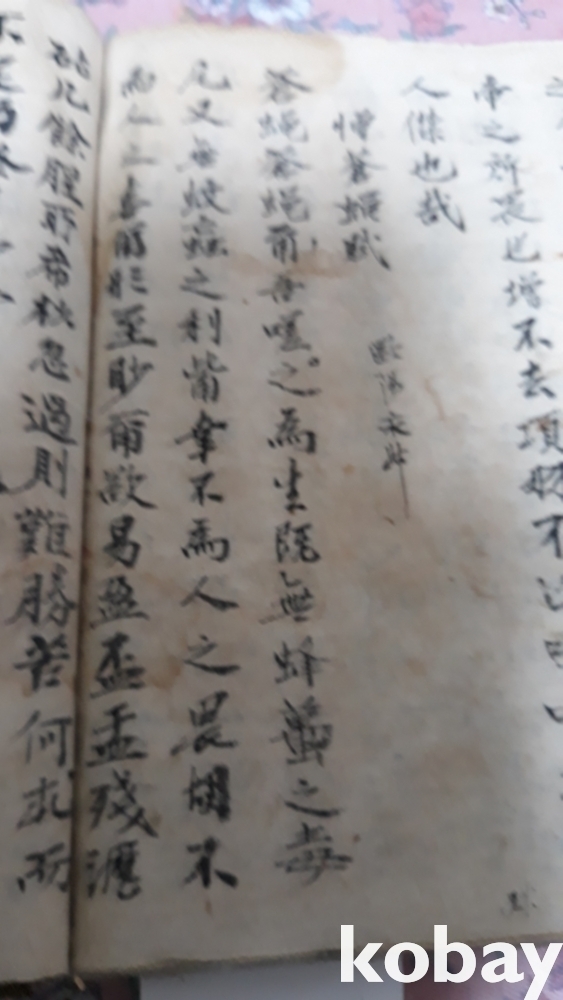 帝之所畏也增不去項羽不亡嗚
人傑也哉
憎蒼蠅賦 歐陽永叔
蒼蠅蒼蠅爾吾嗟之為生既無蜂蠆之毒
尾又無蚊蝱之利觜幸不為人之畏胡不
為人之喜爾形至眇爾欲易盈盃盂殘瀝
砧几餘腥所希秋忽過則難勝苦何求而
kobay